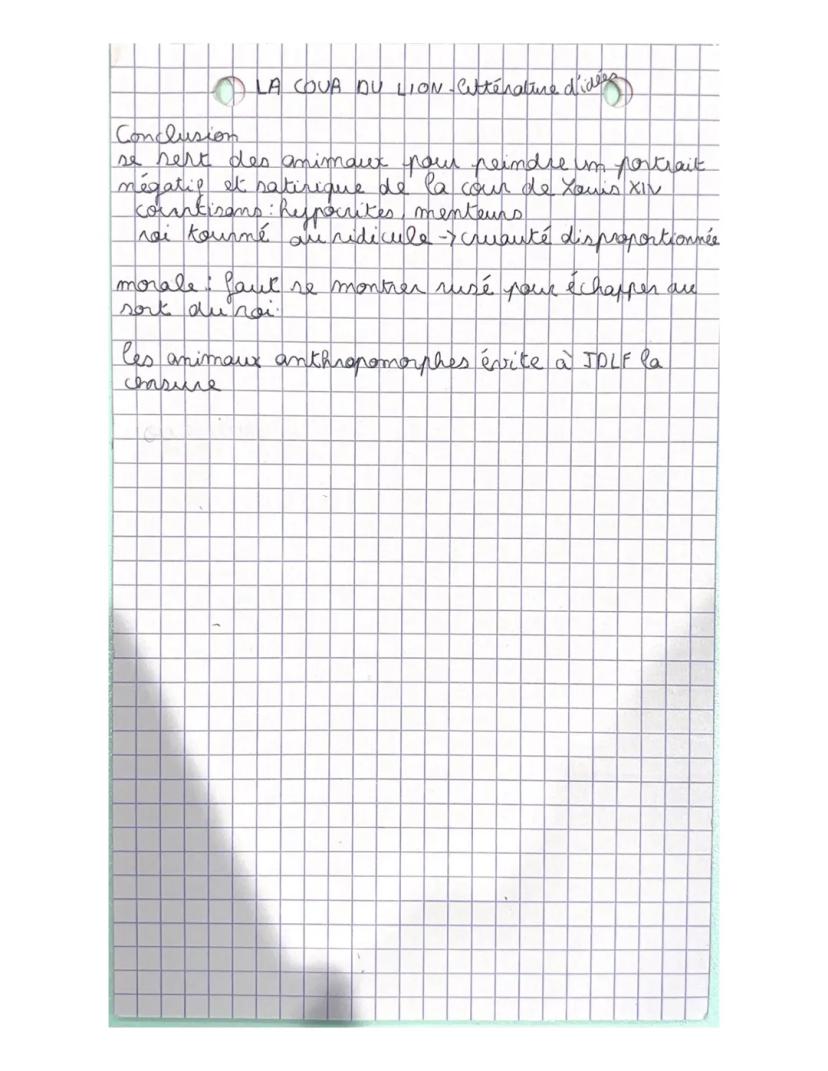 LA COUR DU LION - littérature d'idées
Conclusion
se sert des animaux pour peindre un portrait
négatif et satirique de la cour de Louis XIV
courtisans : hypocrites, menteurs
roi tourné au ridicule -> cruauté disproportionnée
morale : faut se montrer rusé pour échapper au
sort du roi.
les animaux anthropomorphes évite à JDLF la
censure